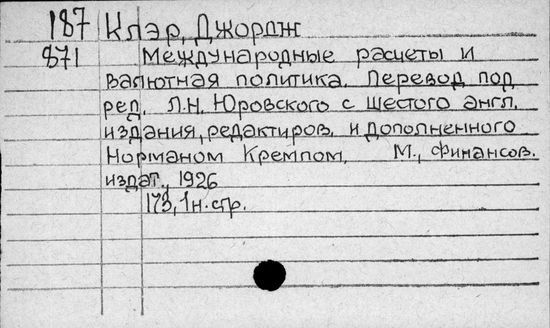 187 Клэр, Джордж
871 Международные расчеты и
валютная политика. Перевод под
ред. Л.Н. Юровского с шестого англ.
издания, редактиров. и дополненного
Норманом Кремпом. М., Финансов.
издат., 1926
173, 1 н. стр.